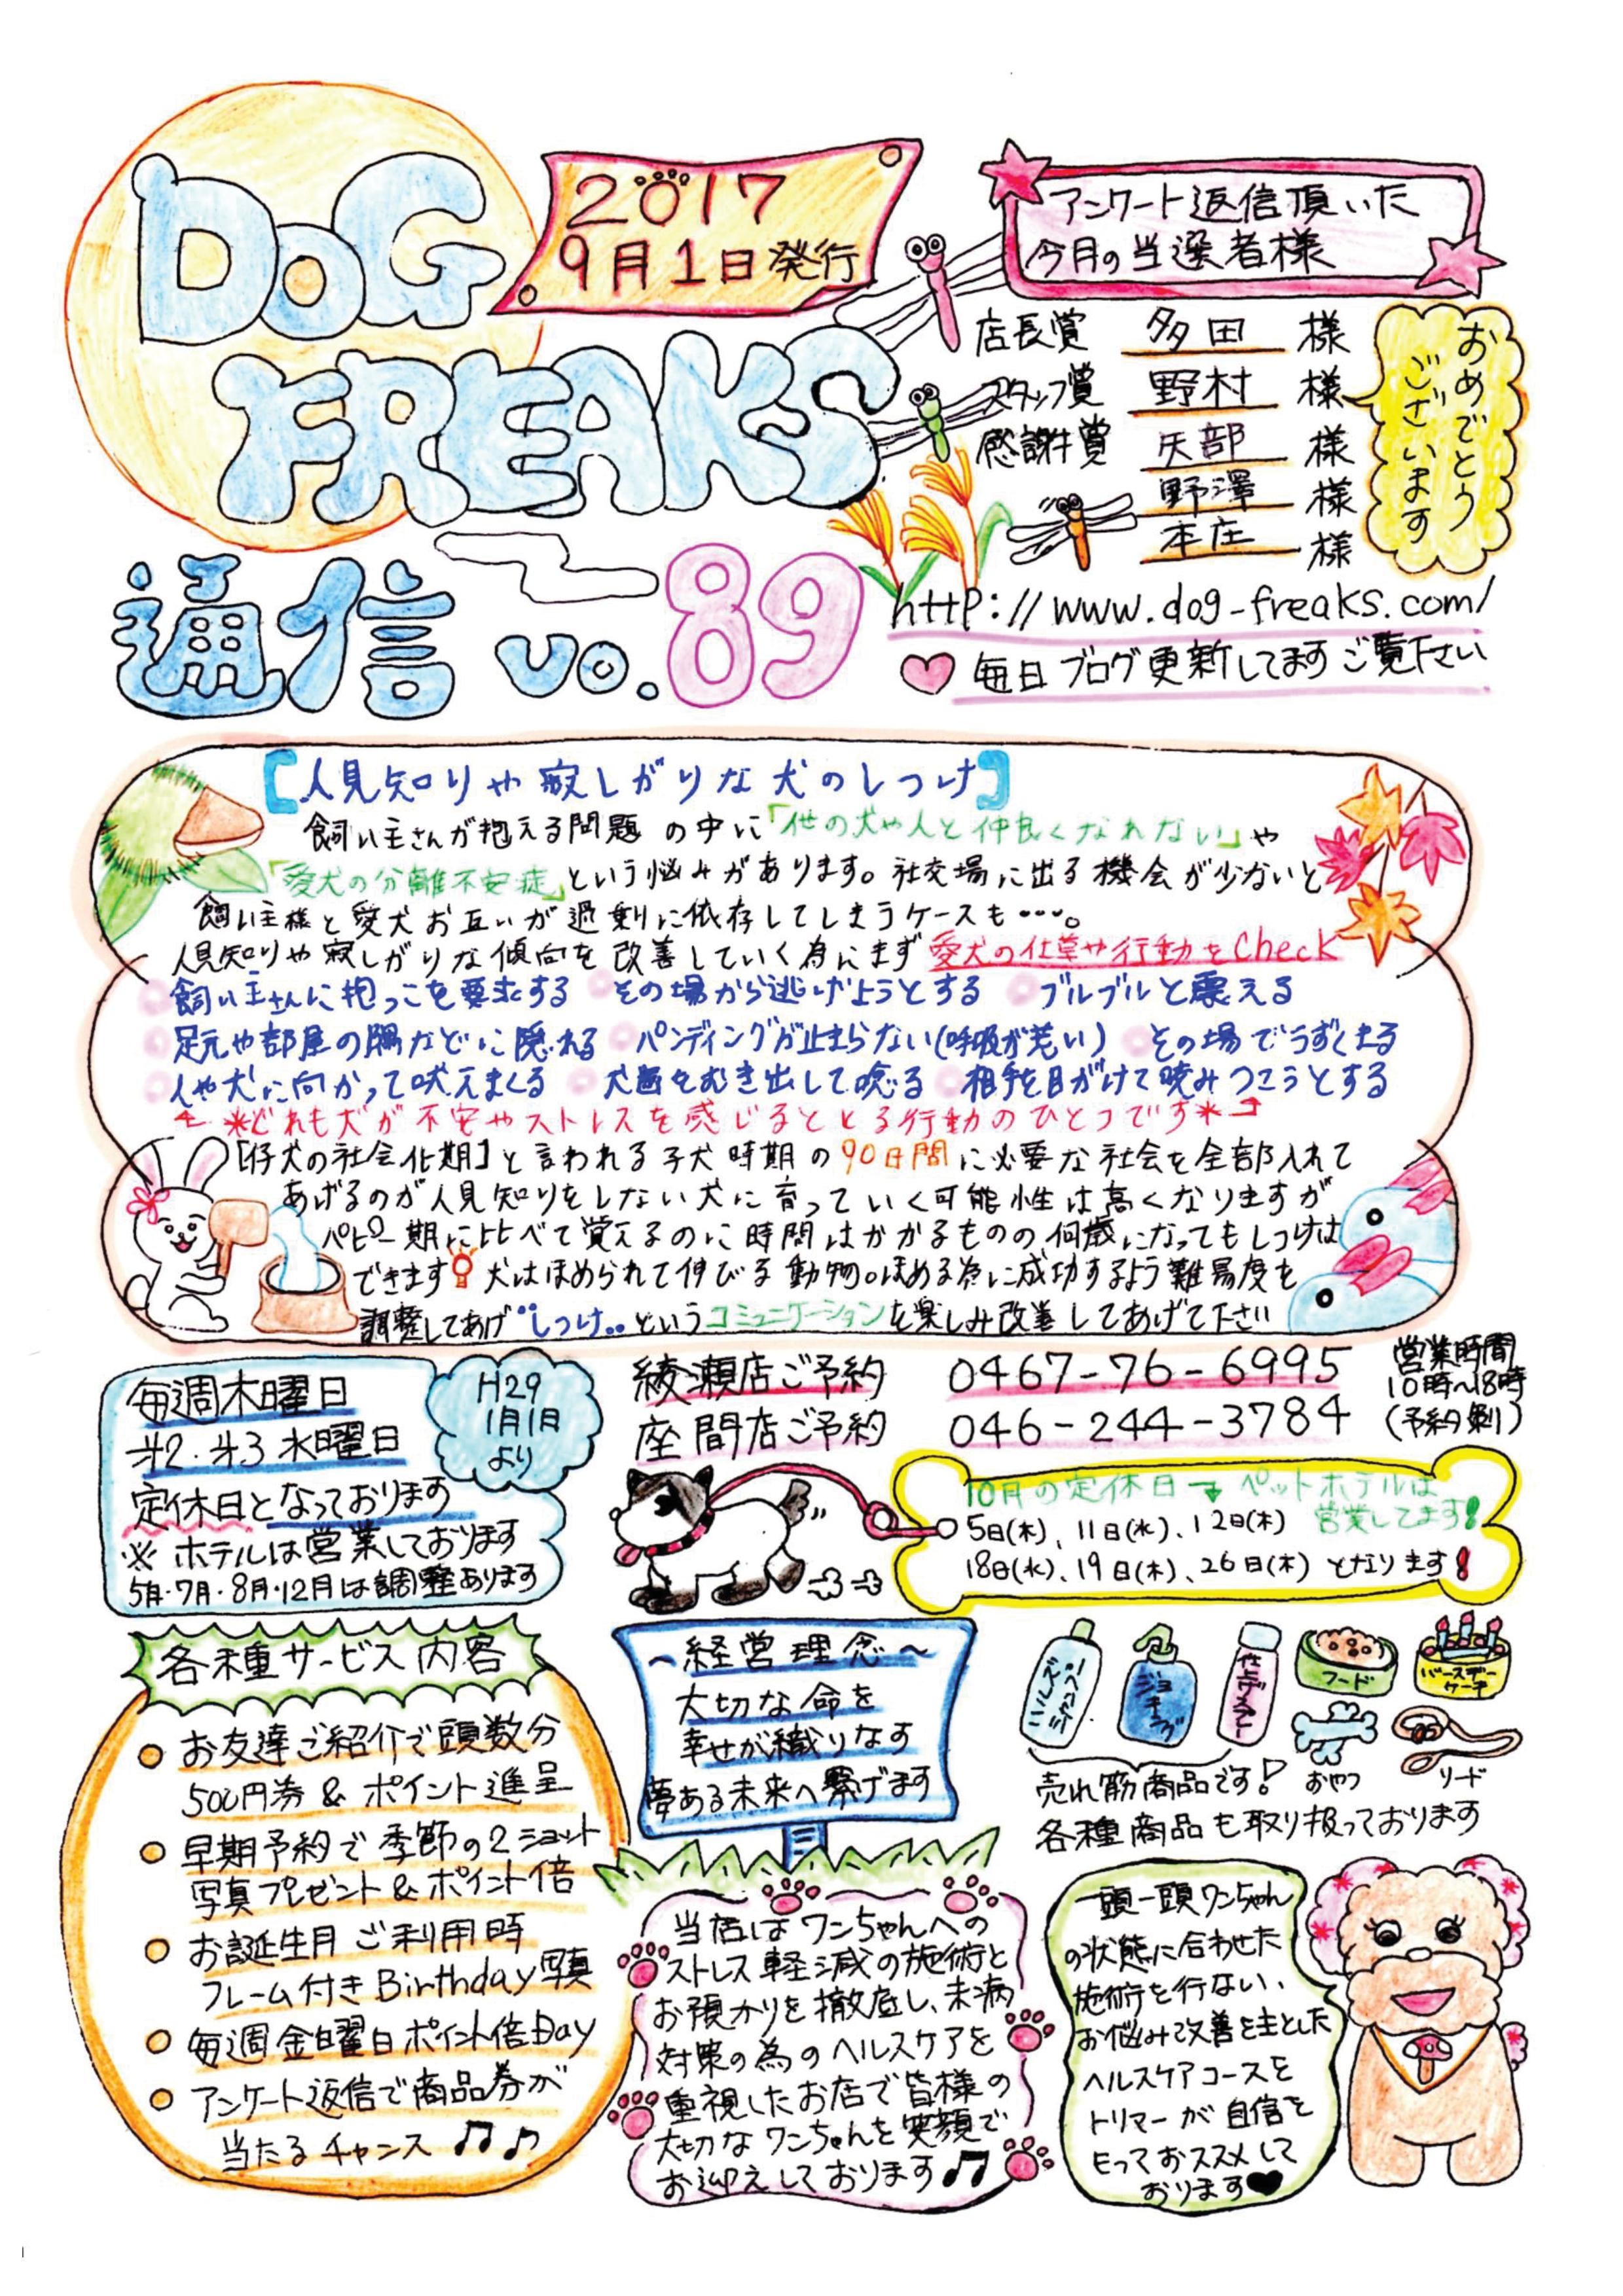 DoG
FREAKS
通信 vo.89
2017
9月1日発行
アンケート返信頂いた
今月の当選者様
店長賞 多田 様
スタッフ賞 野村 様
感謝賞 矢部 様
野澤 様
本庄 様
おめでとう
ございます
http://www.dog-freaks.com/
毎日ブログ更新してますご覧下さい
【人見知りや寂しがりな犬のしつけ】
飼い主さんが抱える問題の中に「他の犬や人と仲良くなれない」や
「愛犬の分離不安症」という悩みがあります。社交場に出る機会が少ないと
飼い主様と愛犬お互いが過剰に依存してしまうケースも・・・。
人見知りや寂しがりな傾向を改善していく為にまず愛犬の仕草や行動をCheck
飼い主さんに抱っこを要求する その場から逃げようとする ブルブルと震える
足元や部屋の隅などに隠れる パンディングが止まらない(呼吸が荒い) その場でうずくまる
人や犬に向かって吠えまくる 犬歯をむき出して唸る 相手を目がけて噛みつこうとする
*どれも犬が不安やストレスを感じるととる行動のひとつです*
[仔犬の社会化期]と言われる子犬時期の90日間に必要な社会を全部入れて
あげるのが人見知りをしない犬に育っていく可能性は高くなりますが
パピー期に比べて覚えるのに時間はかかるものの何歳になってもしつけは
できます! 犬はほめられて伸びる動物。ほめる為に成功するよう難易度を
調整してあげ"しつけ"というコミュニケーションを楽しみ改善してあげて下さい
毎週木曜日
第2.第3水曜日
定休日となっております
※ ホテルは営業しております
5月・7月・8月・12月は調整あります
H29
1月1日
より
綾瀬店ご予約 0467-76-6995
座間店ご予約 046-244-3784
営業時間
10時~18時
(予約制)
10月の定休日→ペットホテルは
営業してます!
5日(木)、11日(水)、12日(木)
18日(水)、19日(木)、26日(木)となります!
各種サービス内容
○ お友達ご紹介で頭数分
500円券 & ポイント進呈
○ 早期予約で季節の2ショット
写真プレゼント&ポイント倍
○ お誕生月ご利用時
フレーム付きBirthday写真
○ 毎週金曜日ポイント倍Day
○ アンケート返信で商品券が
当たるチャンス♫♪
~経営理念~
大切な命を
幸せが織りなす
夢ある未来へ繋げます
ハルズ
シャンプー
フード
バースデー
ケーキ
おやつ
リード
売れ筋商品です!
各種商品も取り扱っております
当店はワンちゃんへの
ストレス軽減の施術と
お預かりを徹底し、未病
対策の為のヘルスケアを
重視したお店で皆様の
大切なワンちゃんを笑顔で
お迎えしております♫
一頭一頭ワンちゃん
の状態に合わせた
施術を行ない、
お悩み改善を主とした
ヘルスケアコースを
トリマーが自信を
もっておススメして
おります♥